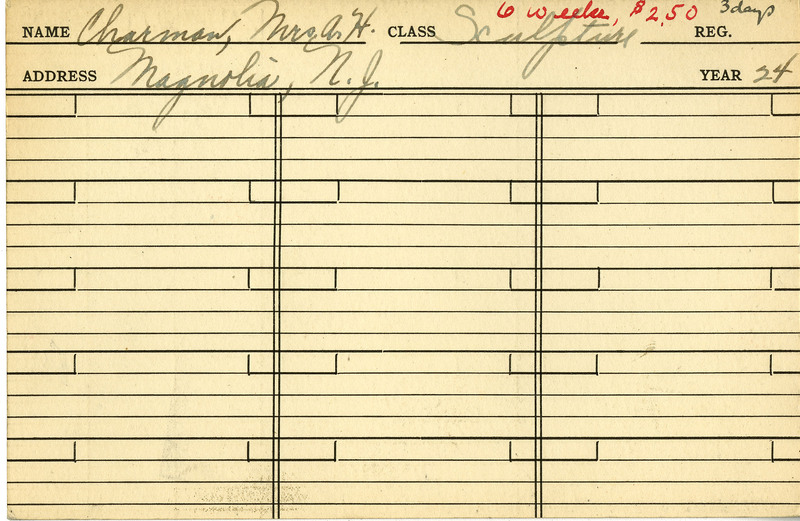 6 weeks, $2.50 3days
NAME Charman, Mrs. A. H. CLASS Sculpture REG.
ADDRESS Magnolia, N. J. YEAR 24